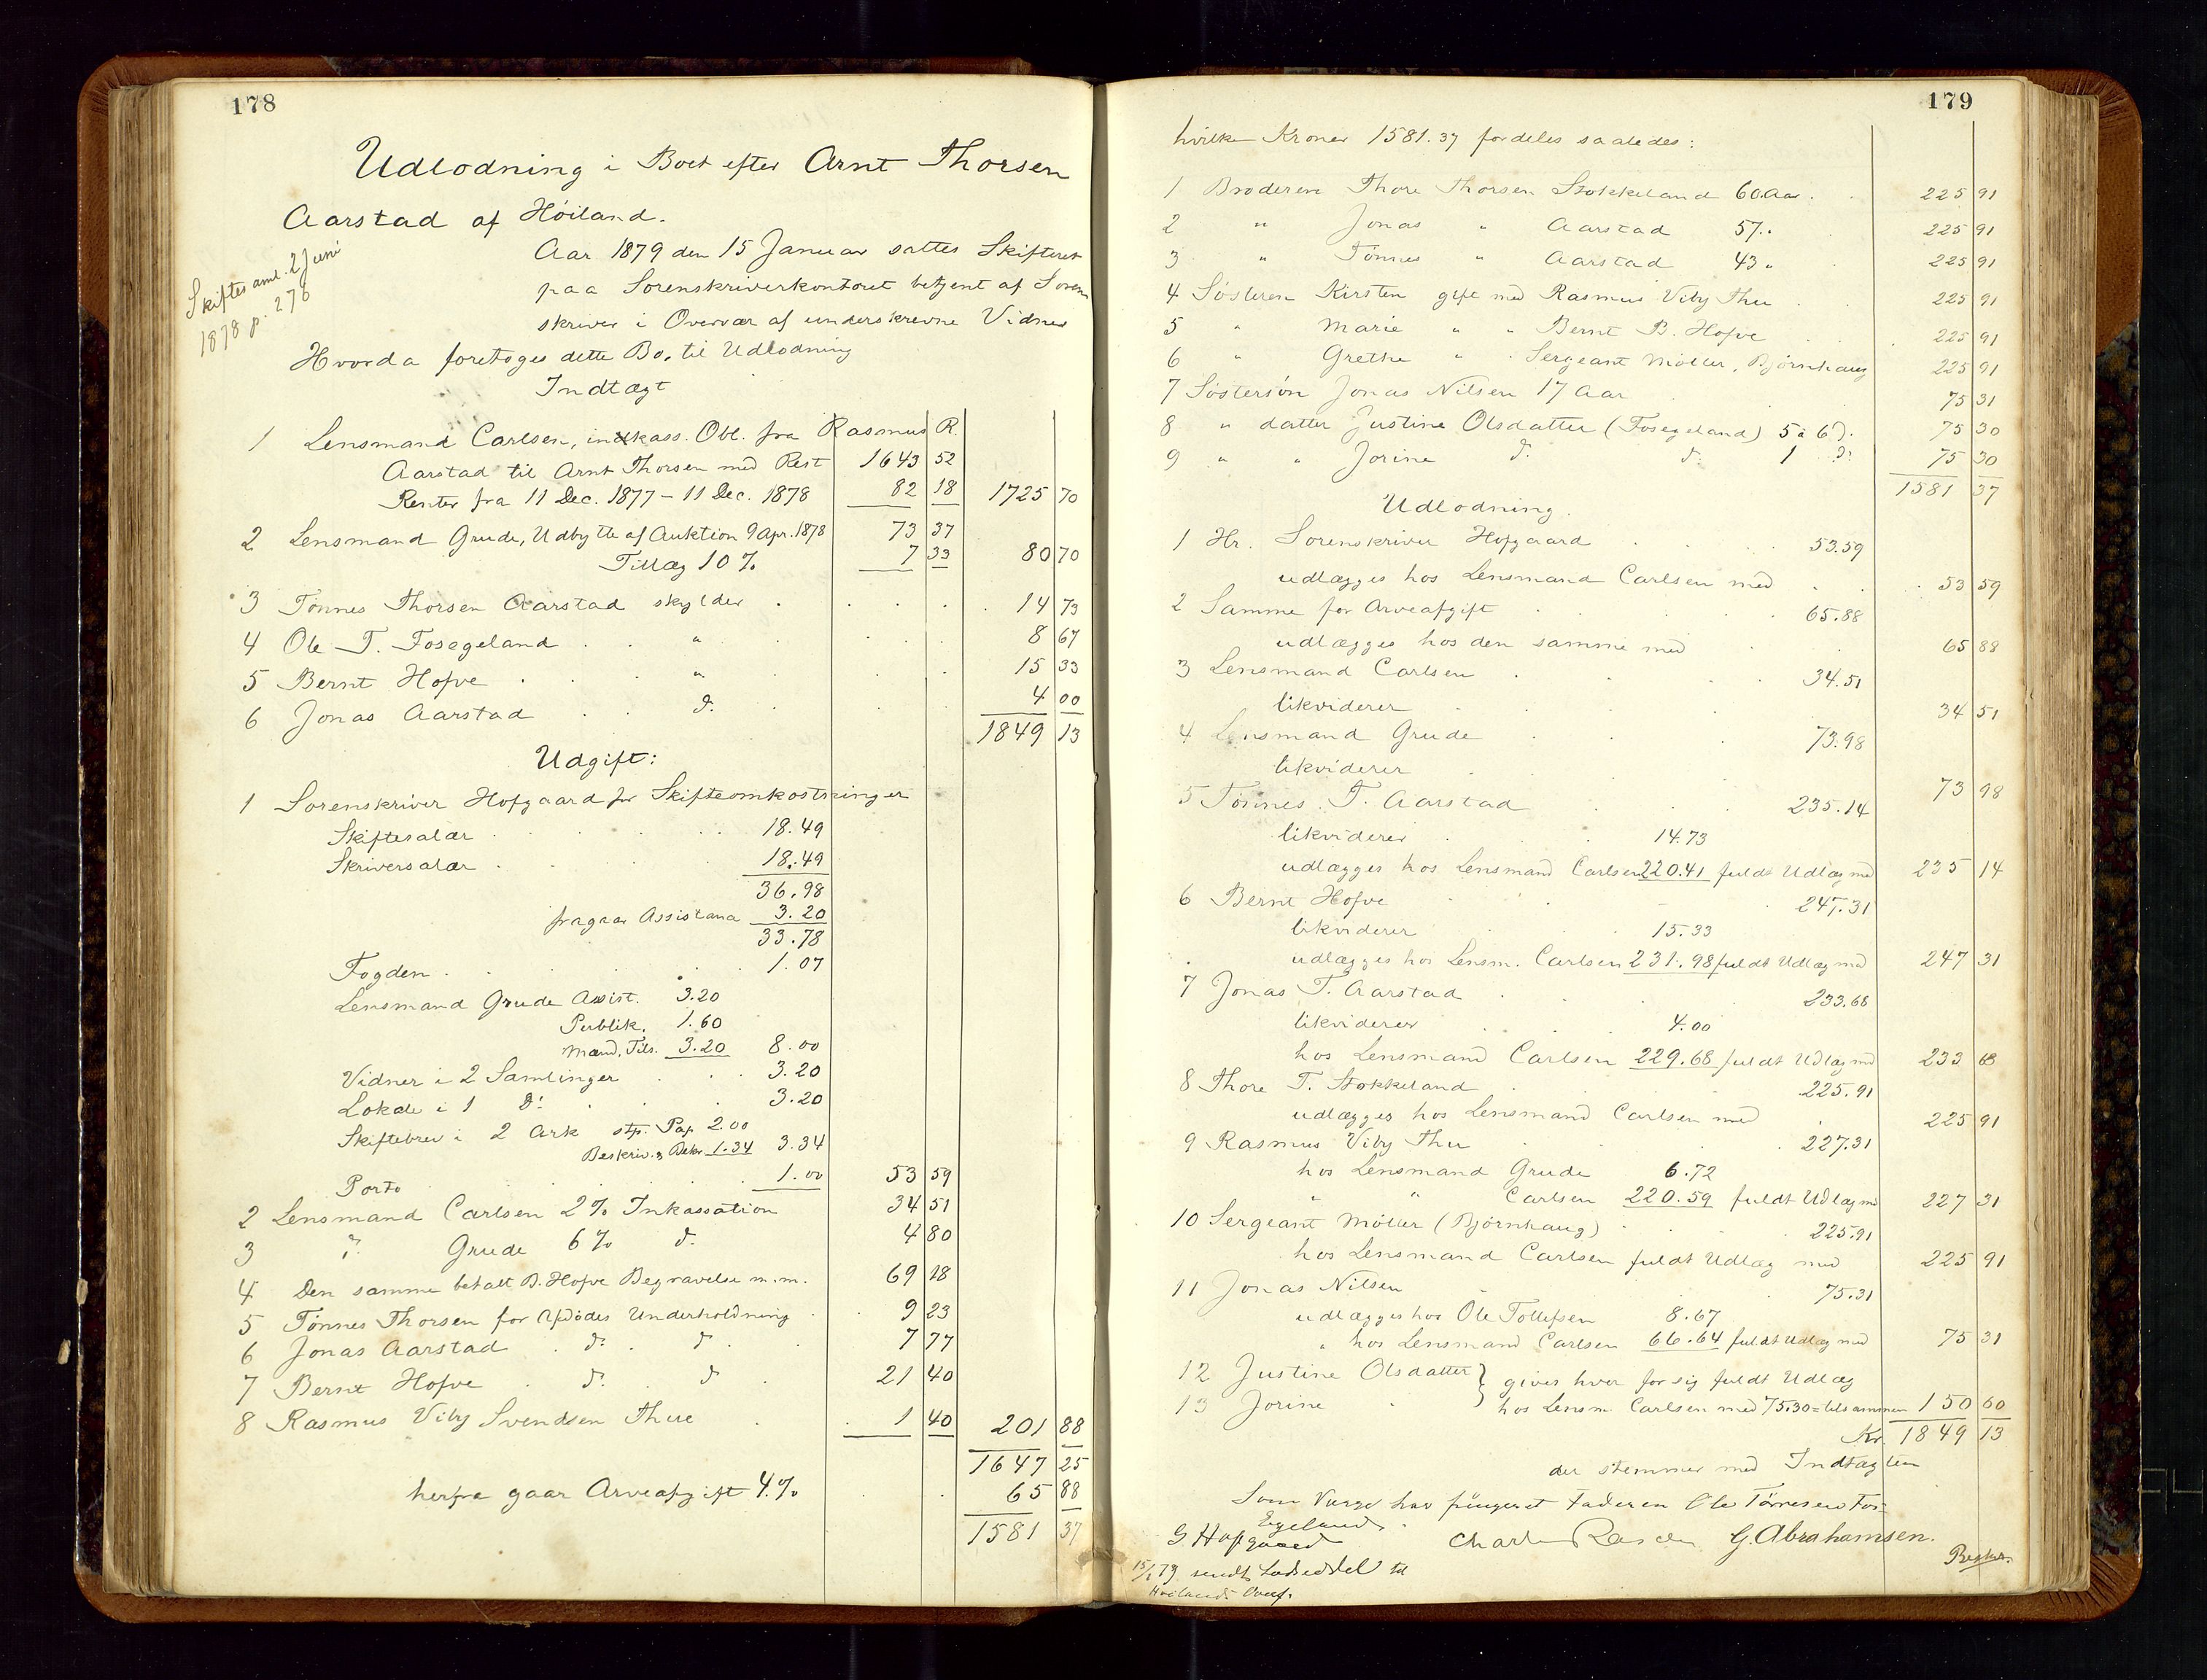 178
Udlodning i Boet efter Arnt Thorsen
Aarstad af Höiland.
Skiftesaml. 2 Juni
1878 p. 276
Aar 1879 den 15 Januar sattes Skifteret
paa Sorenskriverkontoret betjent af Soren
skriver i Overvær af underskrevne Vidner
Hvorda foretoges dette Bo, til Udlodning
Indtægt
1 Lensmand Carlsen, inkass. Obl. fra Rasmus R.
Aarstad til Arnt Thorsen med Rest 1643 52
Renter fra 11 Dec. 1877 - 11 Dec. 1878 82 18 1725 70
2 Lensmand Grude, Udbytte af Auktion 9 Apr. 1878 73 37
Tillæg 10 % 7 33 80 70
3 Tönnes Thorsen Aarstad skylder 14 73
4 Ole T. Fosegeland " 8 67
5 Bernt Hofve " 15 33
6 Jonas Aarstad d: 4 00
1849 13
Udgift:
1 Sorenskriver Hofgaard for Skifteomkostninger
Skiftesalær 18.49
Skriversalær 18.49
36.98
fragaar Assistana 3.20
33.78
Fogden 1.07
Lensmand Grude Assist. 3.20
Publik. 1.60
Mand. Tils. 3.20 8.00
Vidner i 2 Samlinger 3.20
Lokale i 1 d: 3.20
Skiftebrev i 2 Ark stp. Pap. 2.00
Beskriv. & Bekr. 1.34 3.34
Porto 1.00 53 59
2 Lensmand Carlsen 2% Inkassation 34 51
3 d: Grude 6% d: 4 80
4 Den samme betalt B. Hofve Begravelse m.m. 69 18
5 Tönnes Thorsen for Afdödes Underholdning 9 23
6 Jonas Aarstad d: d: 7 77
7 Bernt Hofve d: d 21 40
8 Rasmus Viby Svendsen Thue 1 40 201 88
1647 25
herfra gaar Arveafgift 4 % 65 88
1581 37
179
hvilke Kroner 1581.37 fordeles saaledes:
1 Broderen Thore Thorsen Stokkeland 60 Aar. 225 91
2 " Jonas " Aarstad 57 " 225 91
3 " Tönnes " Aarstad 43 " 225 91
4 Sösteren Kirsten gift med Rasmus Viby Thu 225 91
5 " Marie " " Bernt B. Hofve 225 91
6 " Grethe " " Sergeant Möller, Björnhaug 225 91
7 Söstersön Jonas Nilsen 17 Aar 75 31
8 " datter Justine Olsdatter (Fosegeland) 5 à 6 d: 75 30
9 " " Jorine d: d: 1 d: 75 30
1581 37
Udlodning
1 Hr. Sorenskriver Hofgaard 53.59
udlægges hos Lensmand Carlsen med 53 59
2 Samme for Arveafgift 65.88
udlægges hos den samme med 65 88
3 Lensmand Carlsen 34.51
likviderer 34 51
4 Lensmand Grude 73.98
likviderer 73 98
5 Tönnes T. Aarstad 235.14
likviderer 14.73
udlægges hos Lensmand Carlsen 220.41 fuldt Udlæg med 235 14
6 Bernt Hofve 247.31
likviderer 15.33
udlægges hos Lensm. Carlsen 231.98 fuldt Udlæg med 247 31
7 Jonas T. Aarstad 233.68
likviderer 4.00
hos Lensmand Carlsen 229.68 fuldt Udlæg md 233 68
8 Thore T. Stokkeland 225.91
udlægges hos Lensmand Carlsen med 225 91
9 Rasmus Viby Thu 227.31
hos Lensmand Grude 6.72
" " Carlsen 220.59 fuldt Udlæg md 227 31
10 Sergeant Möller (Björnhaug) 225.91
hos Lensmand Carlsen fuldt Udlæg med 225 91
11 Jonas Nilsen 75.31
udlægges hos Ole Tollefsen 8.67
" hos Lensmand Carlsen 66.64 fuldt Udlæg med 75 31
12 Justine Olsdatter } gives hver for sig fuldt Udlæg
13 Jorine " } hos Lensm. Carlsen med 75.30 = tilsammen 150 60
Kr. 1849 13
der stemmer med Indtægten
Som Værge har fungeret Faderen Ole Törresen Fos=
Egeland.
G Hofgaard Charle G. Abrahamsen.
15/1 79 sendt Lodseddel til Beskr.
Höilands Overf.